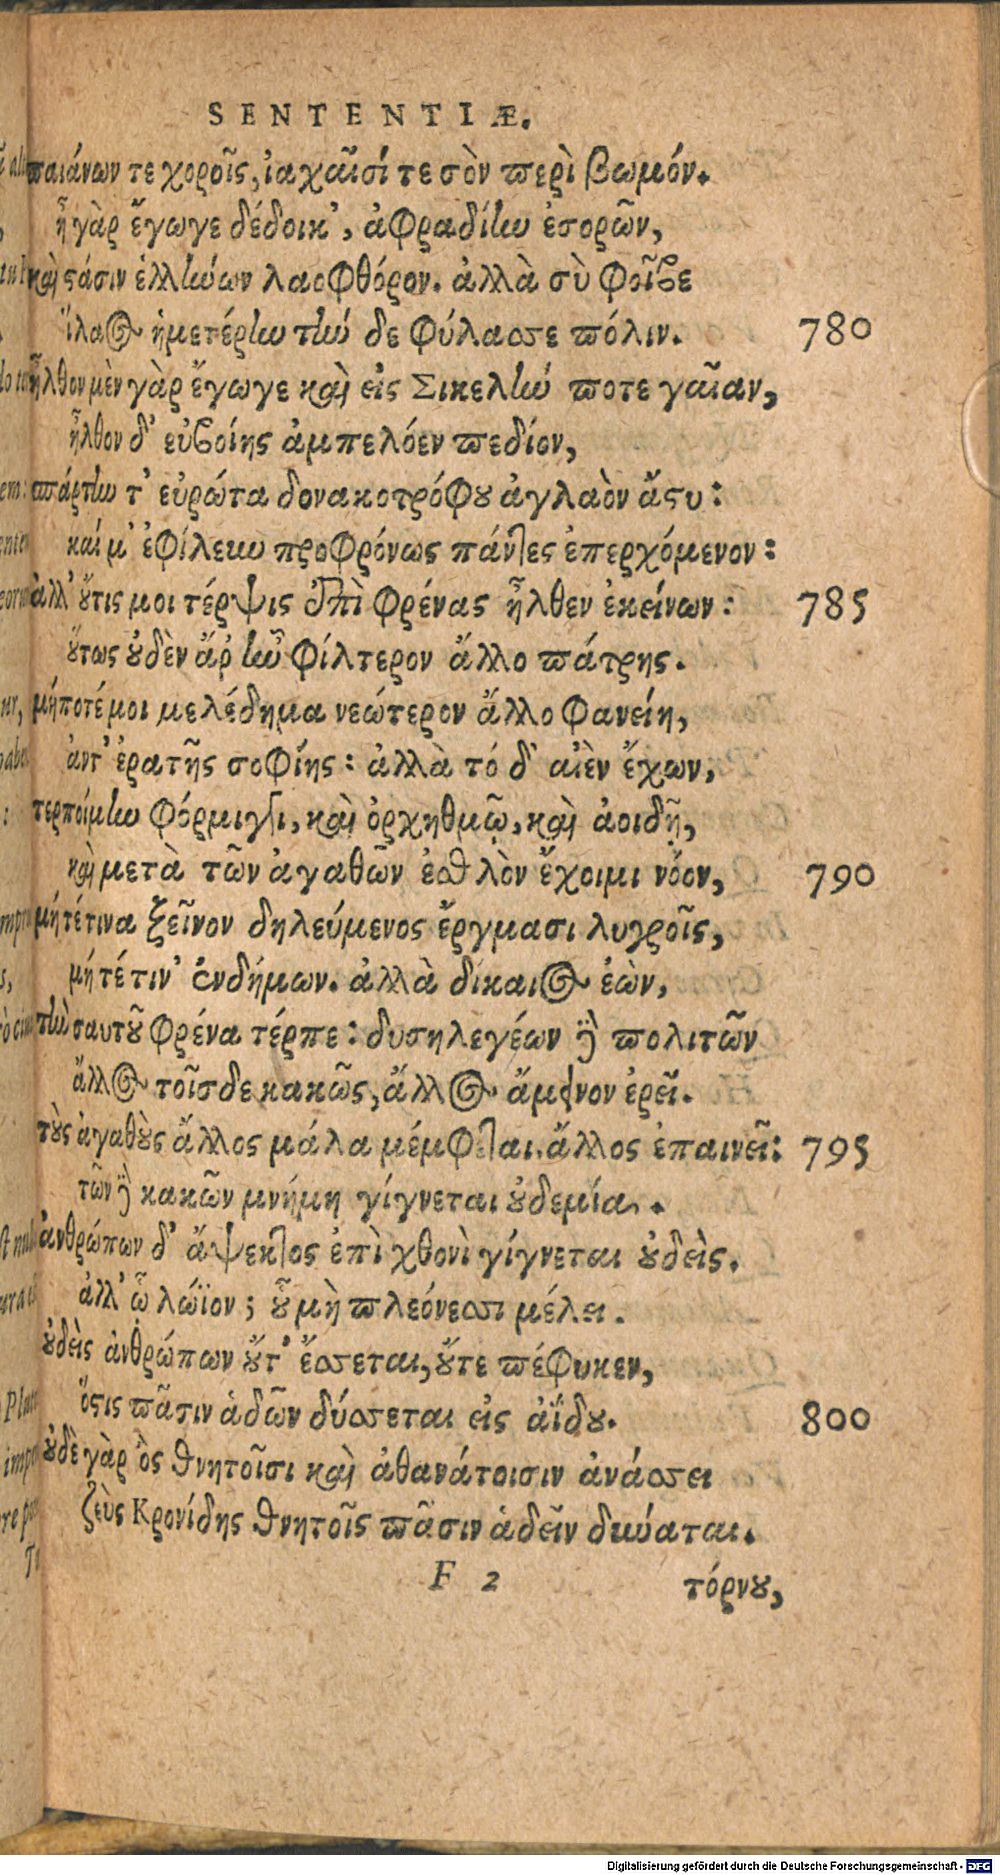 SENTENTIÆ.
παιάνων τε χοροῖς, ἰαχαῖσί τε σὸν περὶ βωμόν.
ἦ γὰρ ἔγωγε δέδοικ', ἀφραδίην ἐσορῶν,
καὶ στάσιν ἑλλήνων λαοφθόρον. ἀλλὰ σὺ φοῖβε
ἵλαος ἡμετέρην τὴν δε φύλασσε πόλιν. 780
ἦλθον μὲν γὰρ ἔγωγε καὶ εἰς Σικελὴν ποτε γαῖαν,
ἦλθον δ' εὐβοίης ἀμπελόεν πεδίον,
σπάρτην τ' εὐρώτα δονακοτρόφου ἀγλαὸν ἄστυ:
καί μ' ἐφίλευν προφρόνως πάντες ἐπερχόμενον:
ἀλλ' οὔτις μοι τέρψις ἐπὶ φρένας ἦλθεν ἐκείνων: 785
οὕτως οὐδὲν ἄρ' ἦν φίλτερον ἄλλο πάτρης.
μήποτέ μοι μελέδημα νεώτερον ἄλλο φανείη,
ἀντ' ἐρατῆς σοφίης: ἀλλὰ τό δ' αἰὲν ἔχων,
τερποίμην φόρμιγγι, καὶ ὀρχηθμῷ, καὶ ἀοιδῇ,
καὶ μετὰ τῶν ἀγαθῶν ἐσθλὸν ἔχοιμι νόον, 790
μήτέ τινα ξεῖνον δηλεύμενος ἔργμασι λυγροῖς,
μήτέ τιν' ἐνδήμων. ἀλλὰ δίκαιος ἐὼν,
τὴν σαυτοῦ φρένα τέρπε: δυσηλεγέων δὲ πολιτῶν
ἄλλος τοῖσδε κακῶς, ἄλλος ἄμεινον ἐρεῖ.
τοὺς ἀγαθοὺς ἄλλος μάλα μέμφεται. ἄλλος ἐπαινεῖ: 795
τῶν δὲ κακῶν μνήμη γίγνεται οὐδεμία.
ἀνθρώπων δ' ἄψεκτος ἐπὶ χθονὶ γίγνεται οὐδεὶς.
ἀλλ' ᾧ λώϊον; οὗ μὴ πλεόνεσσι μέλει.
οὐδεὶς ἀνθρώπων οὔτ' ἔσσεται, οὔτε πέφυκεν,
ὅστις πᾶσιν ἁδῶν δύσσεται εἰς ἀΐδου. 800
οὐδὲ γὰρ ὃς θνητοῖσι καὶ ἀθανάτοισιν ἀνάσσει
ζεὺς Κρονίδης θνητοῖς πᾶσιν ἁδεῖν δύναται.
F 2 τόρνου,
Digitalisierung gefördert durch die Deutsche Forschungsgemeinschaft - DFG